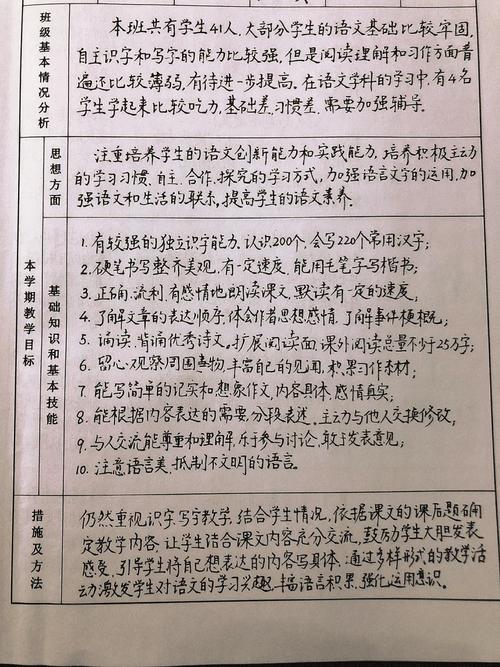 班级基本情况分析
本班共有学生41人，大部分学生的语文基础比较牢固，
自主识字和写字的能力比较强。但是阅读理解和习作方面普
遍还比较薄弱，有待进一步提高。在语文学科的学习中，有4名
学生学起来比较吃力，基础差、习惯差，需要加强辅导。
本学期教学目标
思想方面
注重培养学生的语文创新能力和实践能力，培养积极主动
的学习习惯、自主、合作、探究的学习方式，加强语言文字的运用，加
强语文和生活的联系，提高学生的语文素养。
基础知识和基本技能
1. 有较强的独立识字能力，认识200个，会写220个常用汉字；
2. 硬笔书写整齐美观，有一定速度，能用毛笔字写楷书；
3. 正确、流利、有感情地朗读课文，默读有一定的速度；
4. 了解文章的表达顺序，体会作者思想感情，了解事件梗概；
5. 诵读、背诵优秀诗文，扩展阅读面，课外阅读总量不少于25万字；
6. 留心观察周围事物，丰富自己的见闻，积累习作素材；
7. 能写简单的记实和想象作文，内容具体，感情真实；
8. 能根据内容表达的需要，分段表述，主动与他人交换修改；
9. 与人交流能尊重和理解，乐于参与讨论，敢于发表意见；
10. 注意语言美，抵制不文明的语言。
措施及方法
仍然重视识字、写字教学，结合学生情况，依据课文的课后题确
定教学内容，让学生结合课文内容充分交流，鼓励学生大胆发表
感受，引导学生将自己想表达的内容写具体，通过多样形式的教学活
动激发学生对语文的学习兴趣，丰富语言积累，强化运用意识。